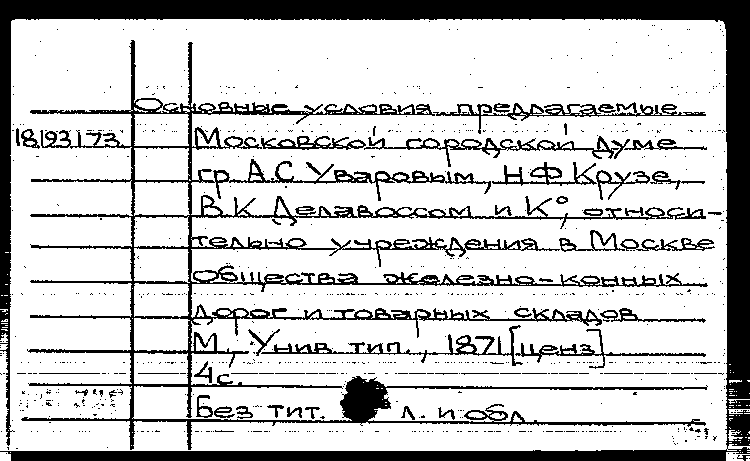 Основные условия предлагаемые
18193173 Московской городской Думе
гр А.С Уваровым, Н Ф Крузе,
В К Делавоссом и К°, относи-
тельно учреждения в Москве
общества железно-конных
дорог и товарных складов
М, Унив тип., 1871 [ценз]
4 с.
Без тит. л. и обл.